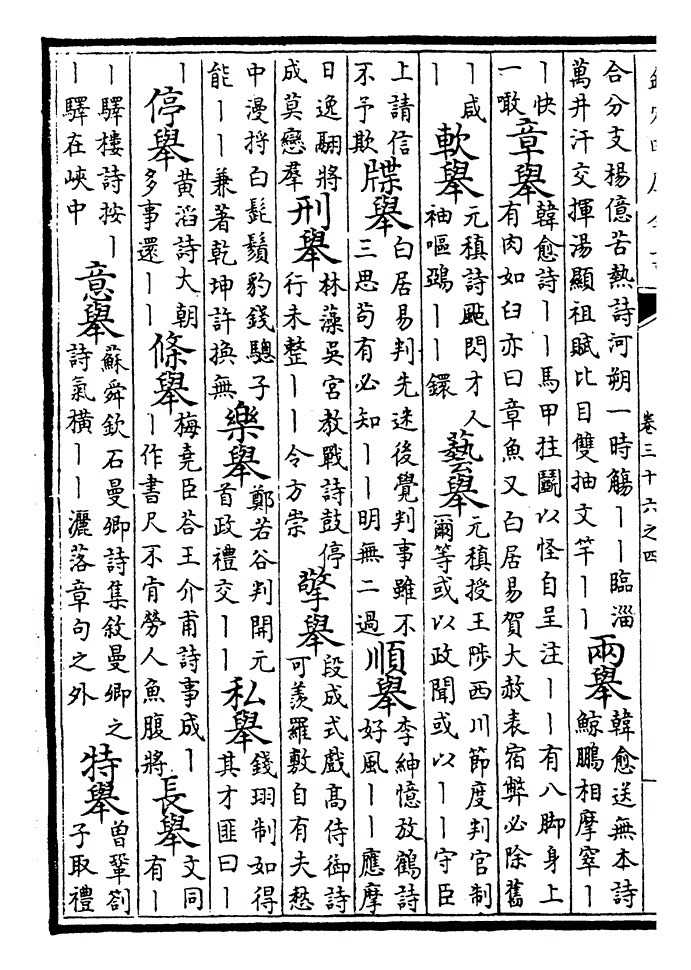 欽定四庫全書
卷三十六之四
合分支楊億苦熱詩河朔一時觴丨丨臨淄
萬井汗交揮湯顯祖賦比目雙抽文竿丨丨
兩舉
韓愈送無本詩
鯨鵬相摩窣丨
丨快
一噉
章舉
韓愈詩丨丨馬甲拄鬭以怪自呈注丨丨有八脚身上
有肉如臼亦曰章魚又白居易賀大赦表宿弊必除舊
丨咸
丨
軟舉
元稹詩颭閃才人
袖嘔鵶丨丨鐶
藝舉
元稹授王陟西川節度判官制
爾等或以政聞或以丨丨守臣
上請信
不予欺
牒舉
白居易判先迷後覺判事雖不
三思苟有必知丨丨明無二過
順舉
李紳憶放鶴詩
好風丨丨應摩
日逸翮將
成莫戀羣
刑舉
林藻吳宮教戰詩鼓停
行未整丨丨令方崇
擎舉
段成式戲高侍御詩
可羨羅敷自有夫愁
中漫捋白髭鬚豹錢驄子
能丨丨兼著乾坤許換無
樂舉
鄭若谷判開元
首政禮交丨丨
私舉
錢珝制如得
其才匪曰丨
丨
停舉
黃滔詩大朝
多事還丨丨
條舉
梅堯臣荅王介甫詩事成丨
丨作書尺不肯勞人魚腹將
長舉
文同
有丨
丨驛樓詩按丨
丨驛在峽中
意舉
蘇舜欽石曼卿詩集敘曼卿之
詩氣橫丨丨灑落章句之外
特舉
曾鞏劄
子取禮